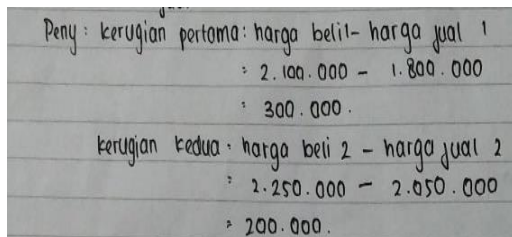 Peny : kerugian pertama : harga beli 1 - harga jual 1
: 2.100.000 - 1.800.000
: 300.000.
kerugian kedua : harga beli 2 - harga jual 2
= 2.250.000 - 2.050.000
= 200.000.